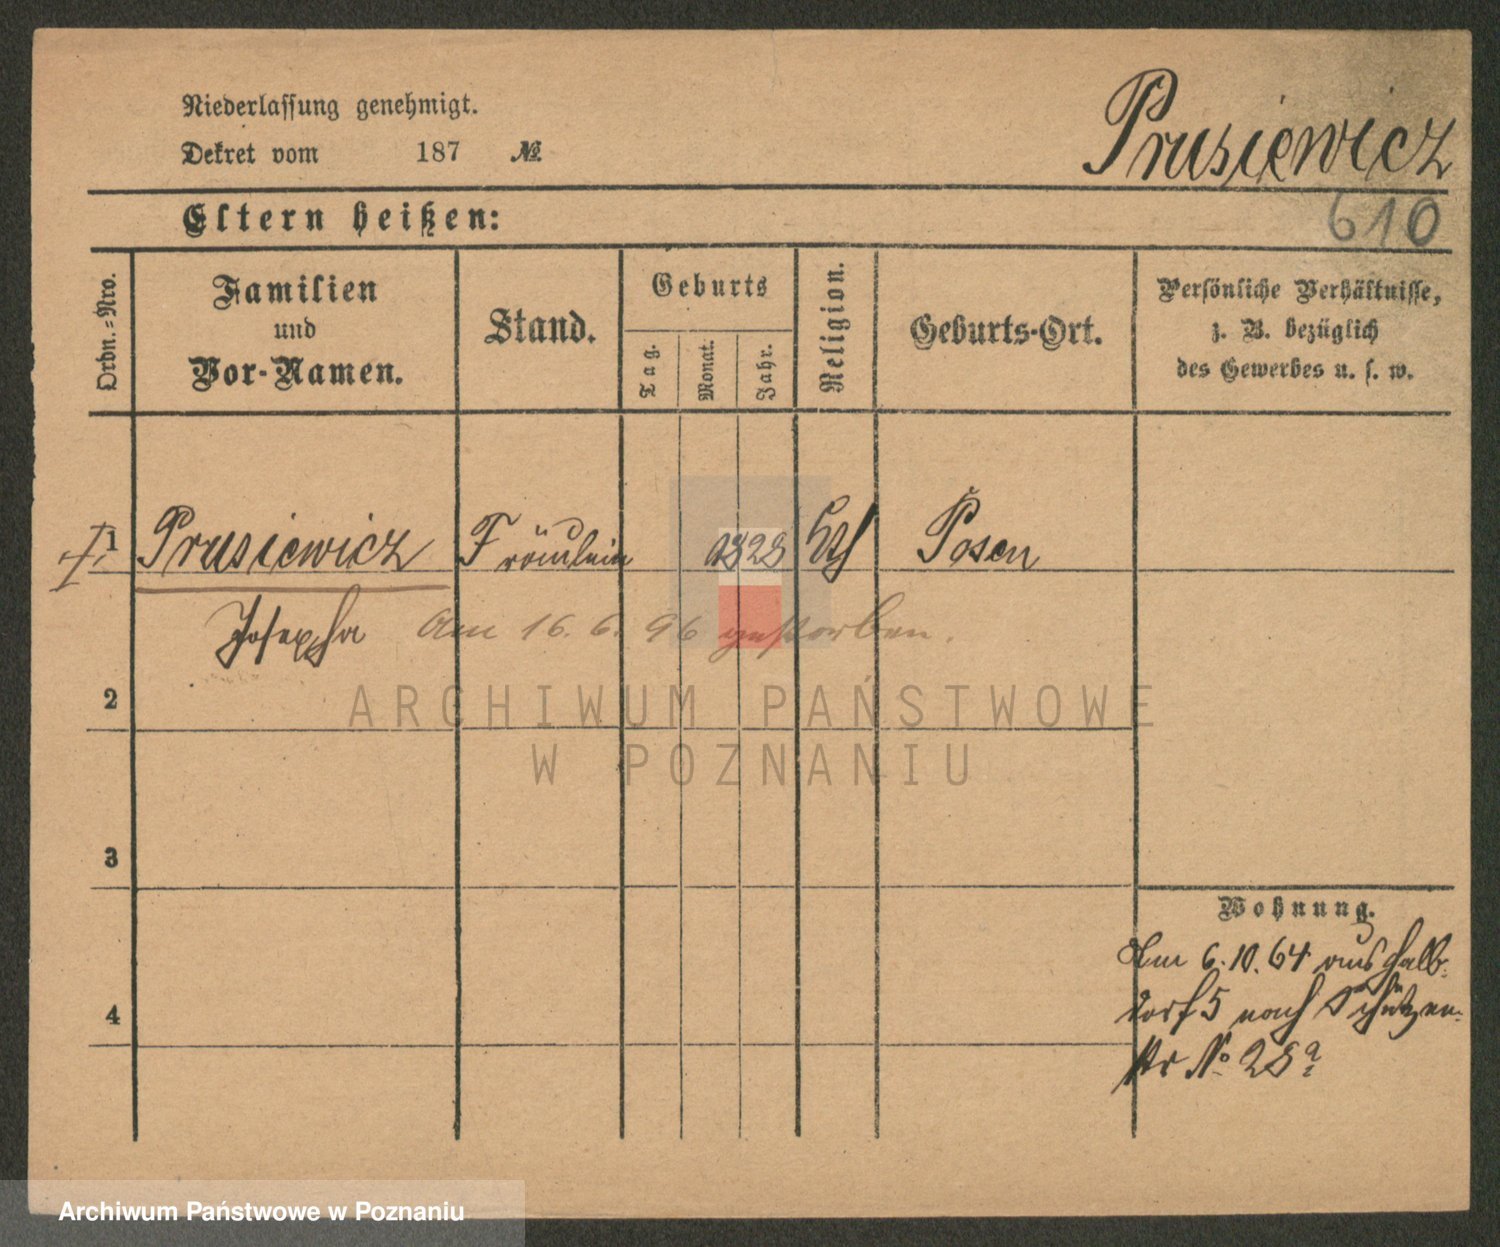 Niederlassung genehmigt.
Dekret vom 187 №
Prusiewicz
Eltern heißen:
610
Ordn.-Nro.
Familien
und
Vor-Namen.
Stand.
Geburts
Tag.
Monat.
Jahr.
Religion.
Geburts-Ort.
Persönliche Verhältnisse,
z. B. bezüglich
des Gewerbes u. s. w.
1 Prusiewicz Fräulein 1828 Posen
Josepha Am 16.6.96 gestorben.
2
3
4
Wohnung.
Am 6.10.64 aus Halb-
dorf 5 nach Schützen-
str No 28a
ARCHIWUM PAŃSTWOWE
W POZNANIU
Archiwum Państwowe w Poznaniu